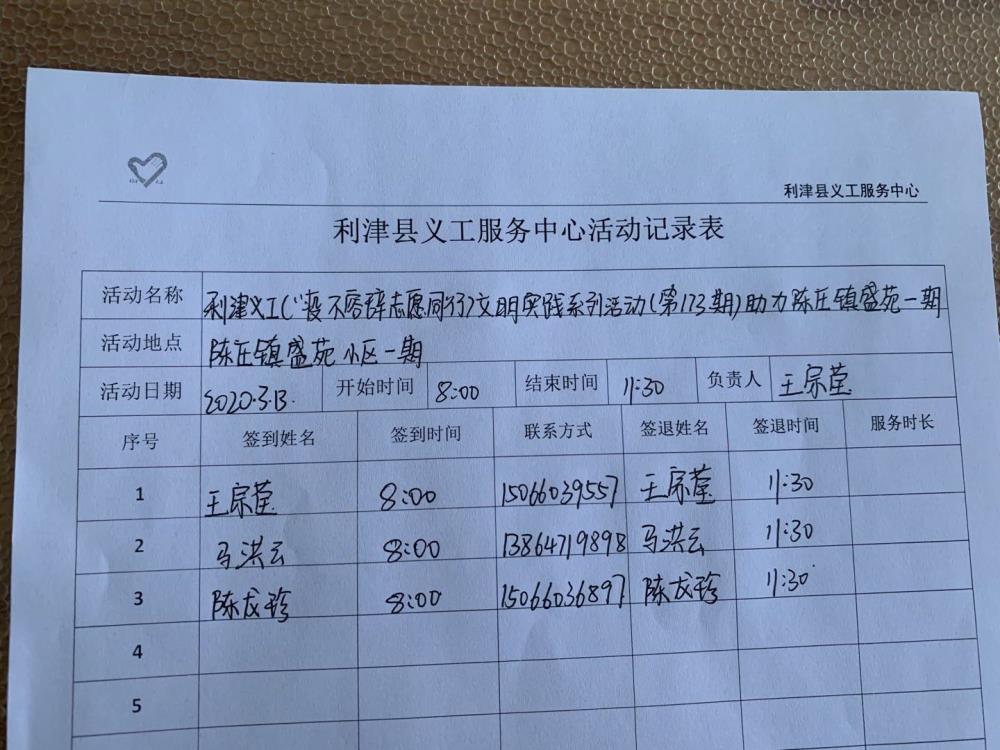 利津县义工服务中心
利津县义工服务中心活动记录表
活动名称 利津义工("疫不容辞志愿同行)文明实践系列活动(第173期)助力陈庄镇盛苑一期
活动地点 陈庄镇盛苑小区一期
活动日期 2020.3.13. 开始时间 8:00 结束时间 11:30 负责人 王宗莹
序号 签到姓名 签到时间 联系方式 签退姓名 签退时间 服务时长
1 王宗莹 8:00 15066039557 王宗莹 11:30
2 马洪云 8:00 13864719898 马洪云 11:30
3 陈龙珍 8:00 15066036897 陈龙珍 11:30
4
5